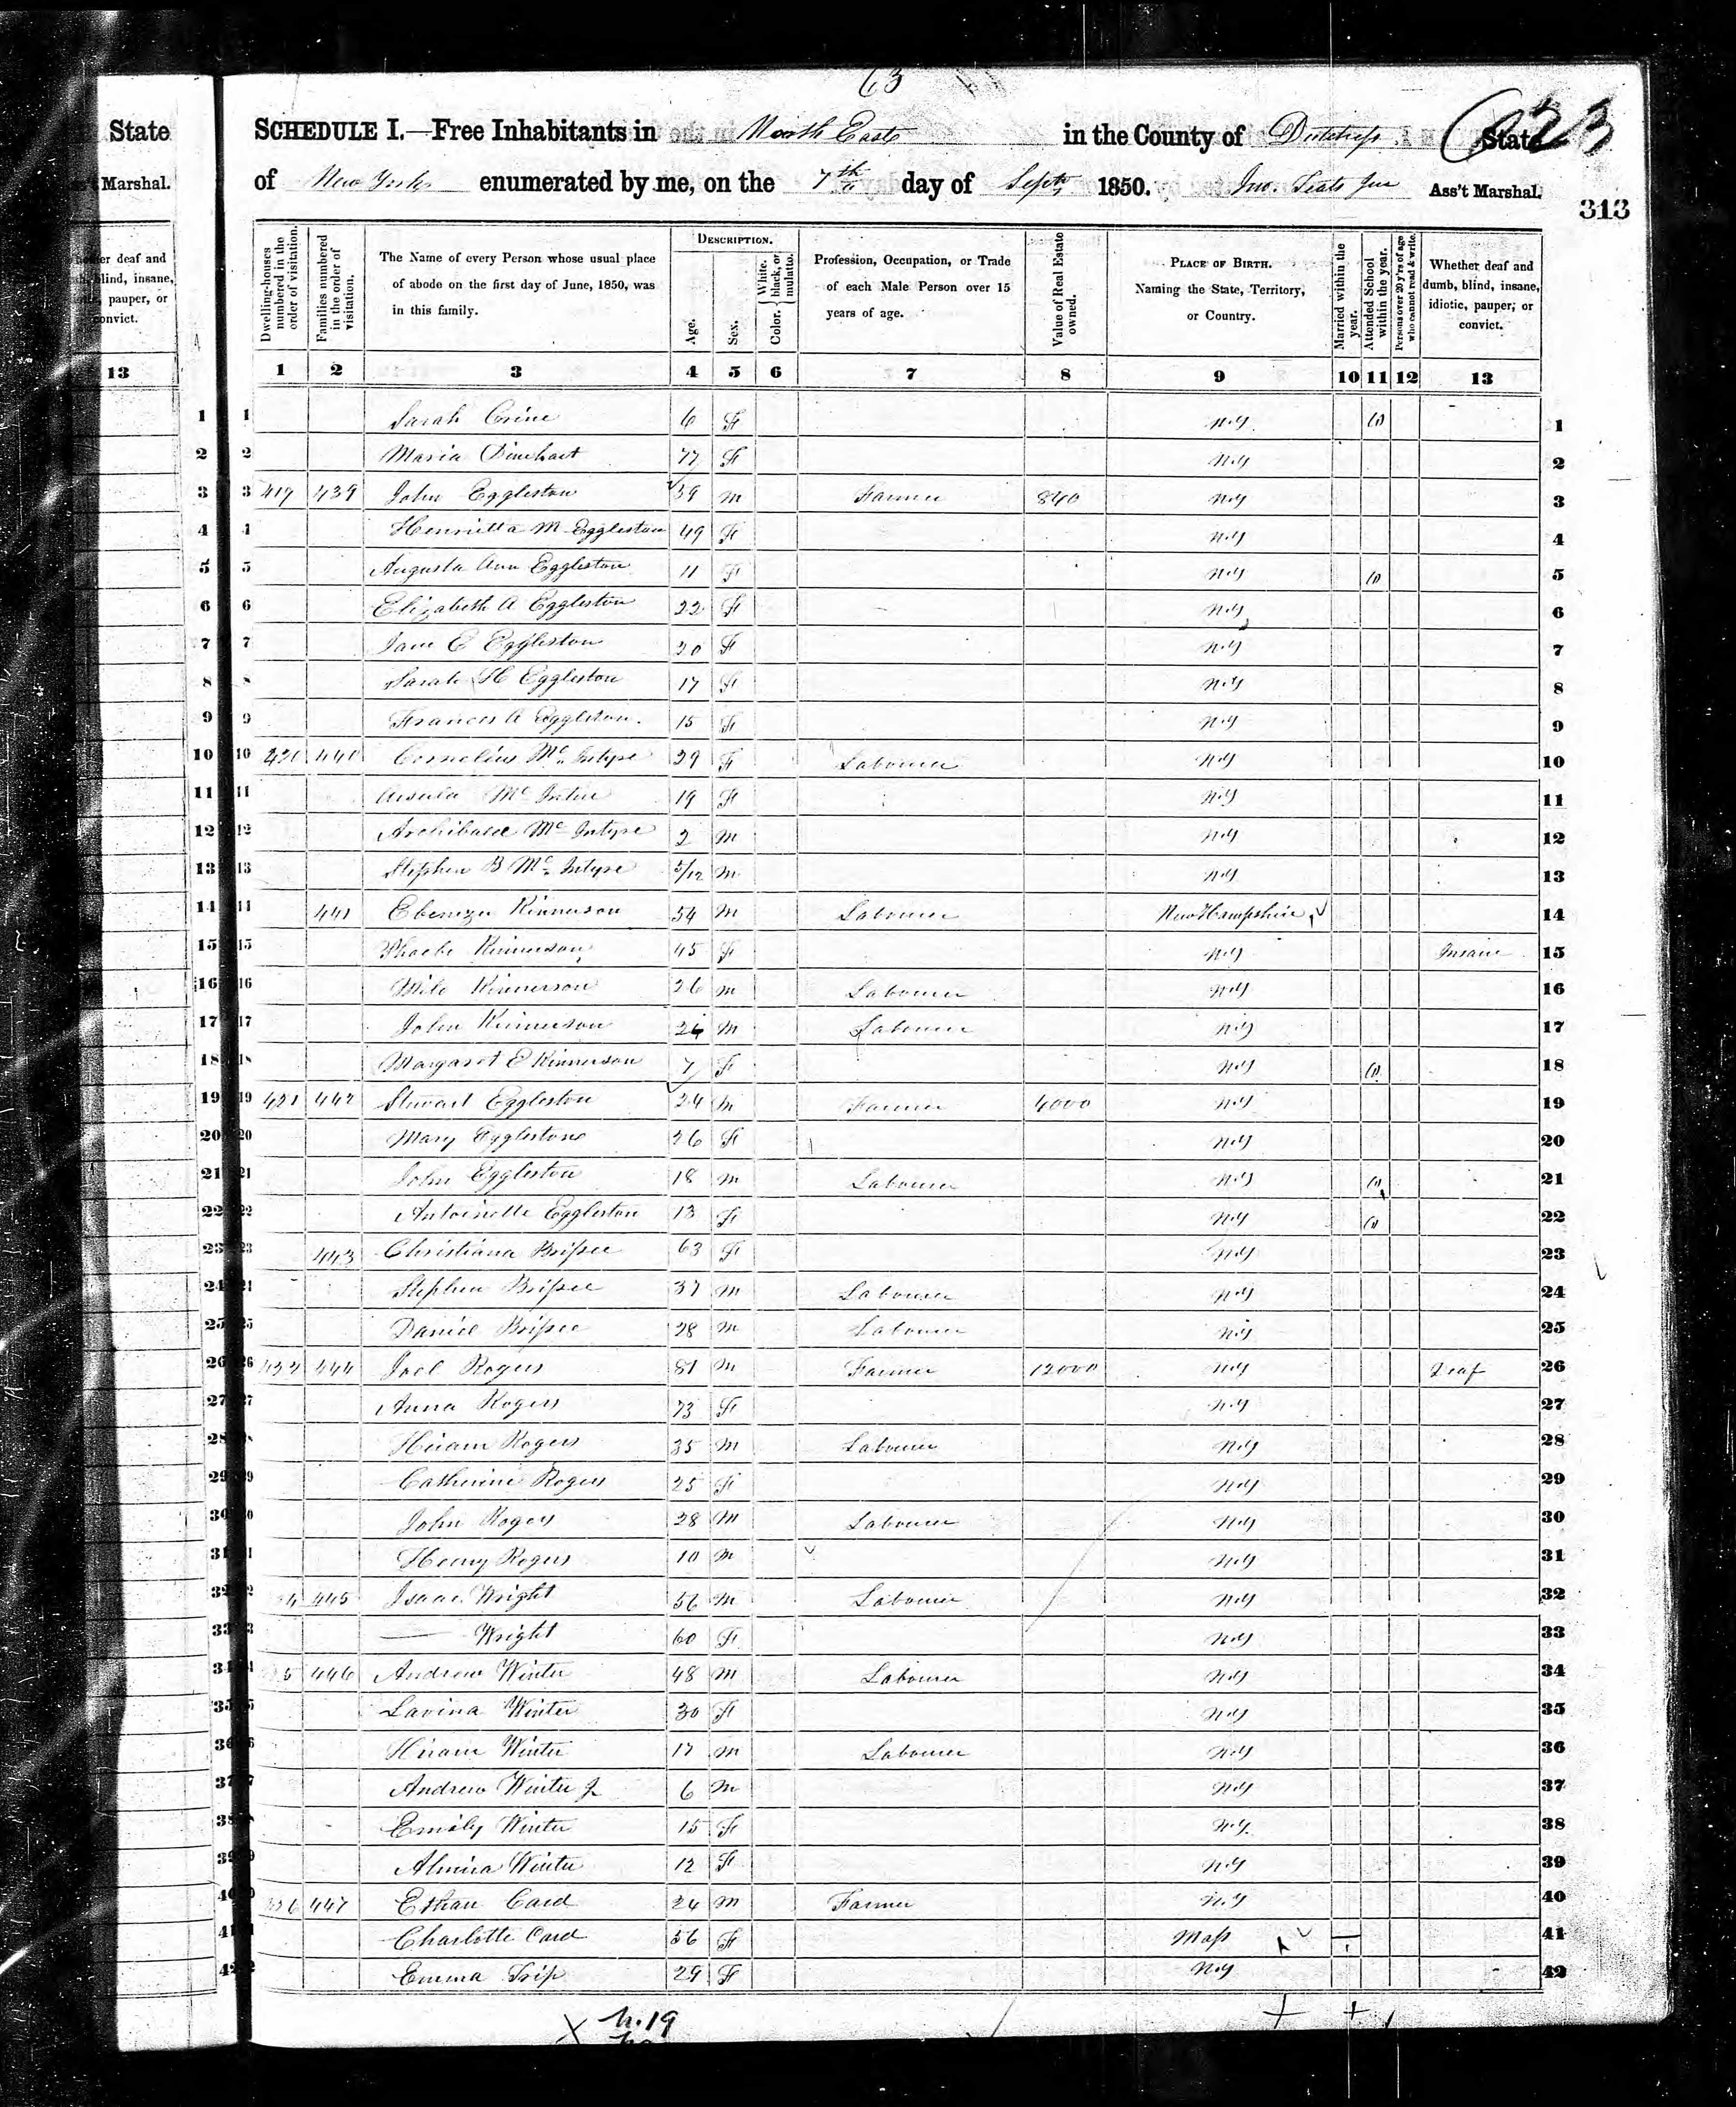 63
State
SCHEDULE I.—Free Inhabitants in North East in the County of Dutchess State 623
't Marshal.
of New York enumerated by me, on the 7th day of Sept 1850. Jno. Ass't Marshal.
313
er deaf and
blind, insane,
pauper, or
convict.
13
Dwelling-houses numbered in the order of visitation.
Families numbered in the order of visitation.
The Name of every Person whose usual place of abode on the first day of June, 1850, was in this family.
DESCRIPTION.
Age.
Sex.
Color. { White, black, or mulatto.
Profession, Occupation, or Trade of each Male Person over 15 years of age.
Value of Real Estate owned.
PLACE OF BIRTH. Naming the State, Territory, or Country.
Married within the year.
Attended School within the year.
Persons over 20 y'rs of age who cannot read & write.
Whether deaf and dumb, blind, insane, idiotic, pauper, or convict.
1 2 3 4 5 6 7 8 9 10 11 12 13
1 Sarah Crine 6 F N.Y. (1) 1
2 Maria Dinehart 77 F N.Y 2
3 419 439 John Eggleston 59 M Farmer 840 N.Y 3
4 Henrietta M Eggleston 49 F N.Y 4
5 Augusta Ann Eggleston 11 F N.Y (1) 5
6 Elizabeth A Eggleston 22 F N.Y 6
7 Jane C Eggleston 20 F N.Y 7
8 Sarah H Eggleston 17 F N.Y 8
9 Frances A Eggleston. 15 F N.Y 9
10 420 440 Cornelius McIntyre 29 F Labourer N.Y 10
11 Mc 19 F N.Y 11
12 Archibald McIntyre 2 M N.Y 12
13 Stephen B McIntyre 5/12 M N.Y 13
14 441 Ebenezer Kinnerson 54 M Labourer New Hampshire 14
15 Phoebe Kinnerson 45 F N.Y Insane 15
16 Milo Kinnerson 26 M Labourer N.Y 16
17 John Kinnerson 24 M Labourer N.Y 17
18 Margaret E Kinnerson 7 F N.Y (1) 18
19 421 442 Stewart Eggleston 24 M Farmer 4000 N.Y 19
20 Mary Eggleston 26 F N.Y 20
21 John Eggleston 18 M Labourer N.Y (1) 21
22 Antoinette Eggleston 13 F N.Y (1) 22
23 443 Christiana 63 F N.Y 23
24 Stephen 37 M Labourer N.Y 24
25 Daniel 28 M Labourer N.Y 25
26 444 Joel Rogers 81 M Farmer 12000 N.Y Deaf 26
27 Anna Rogers 73 F N.Y 27
28 Hiram Rogers 35 M Labourer N.Y 28
29 Catherine Rogers 25 F N.Y 29
30 John Rogers 28 M Labourer N.Y 30
31 Henry Rogers 10 M N.Y 31
32 4 445 Isaac Wright 56 M Labourer N.Y 32
33 — Wright 60 F N.Y 33
34 5 446 Andrew Winter 48 M Labourer N.Y 34
35 Lavina Winter 30 F N.Y 35
36 Hiram Winter 17 M Labourer N.Y 36
37 Andrew Winter J 6 M N.Y 37
38 Emily Winter 15 F N.Y. 38
39 Almira Winter 12 F N.Y 39
40 6 447 Ethan Card 24 M Farmer N.Y 40
41 Charlotte Card 56 F Mass 41
42 Emma Trip 29 F N.Y 42
h.19